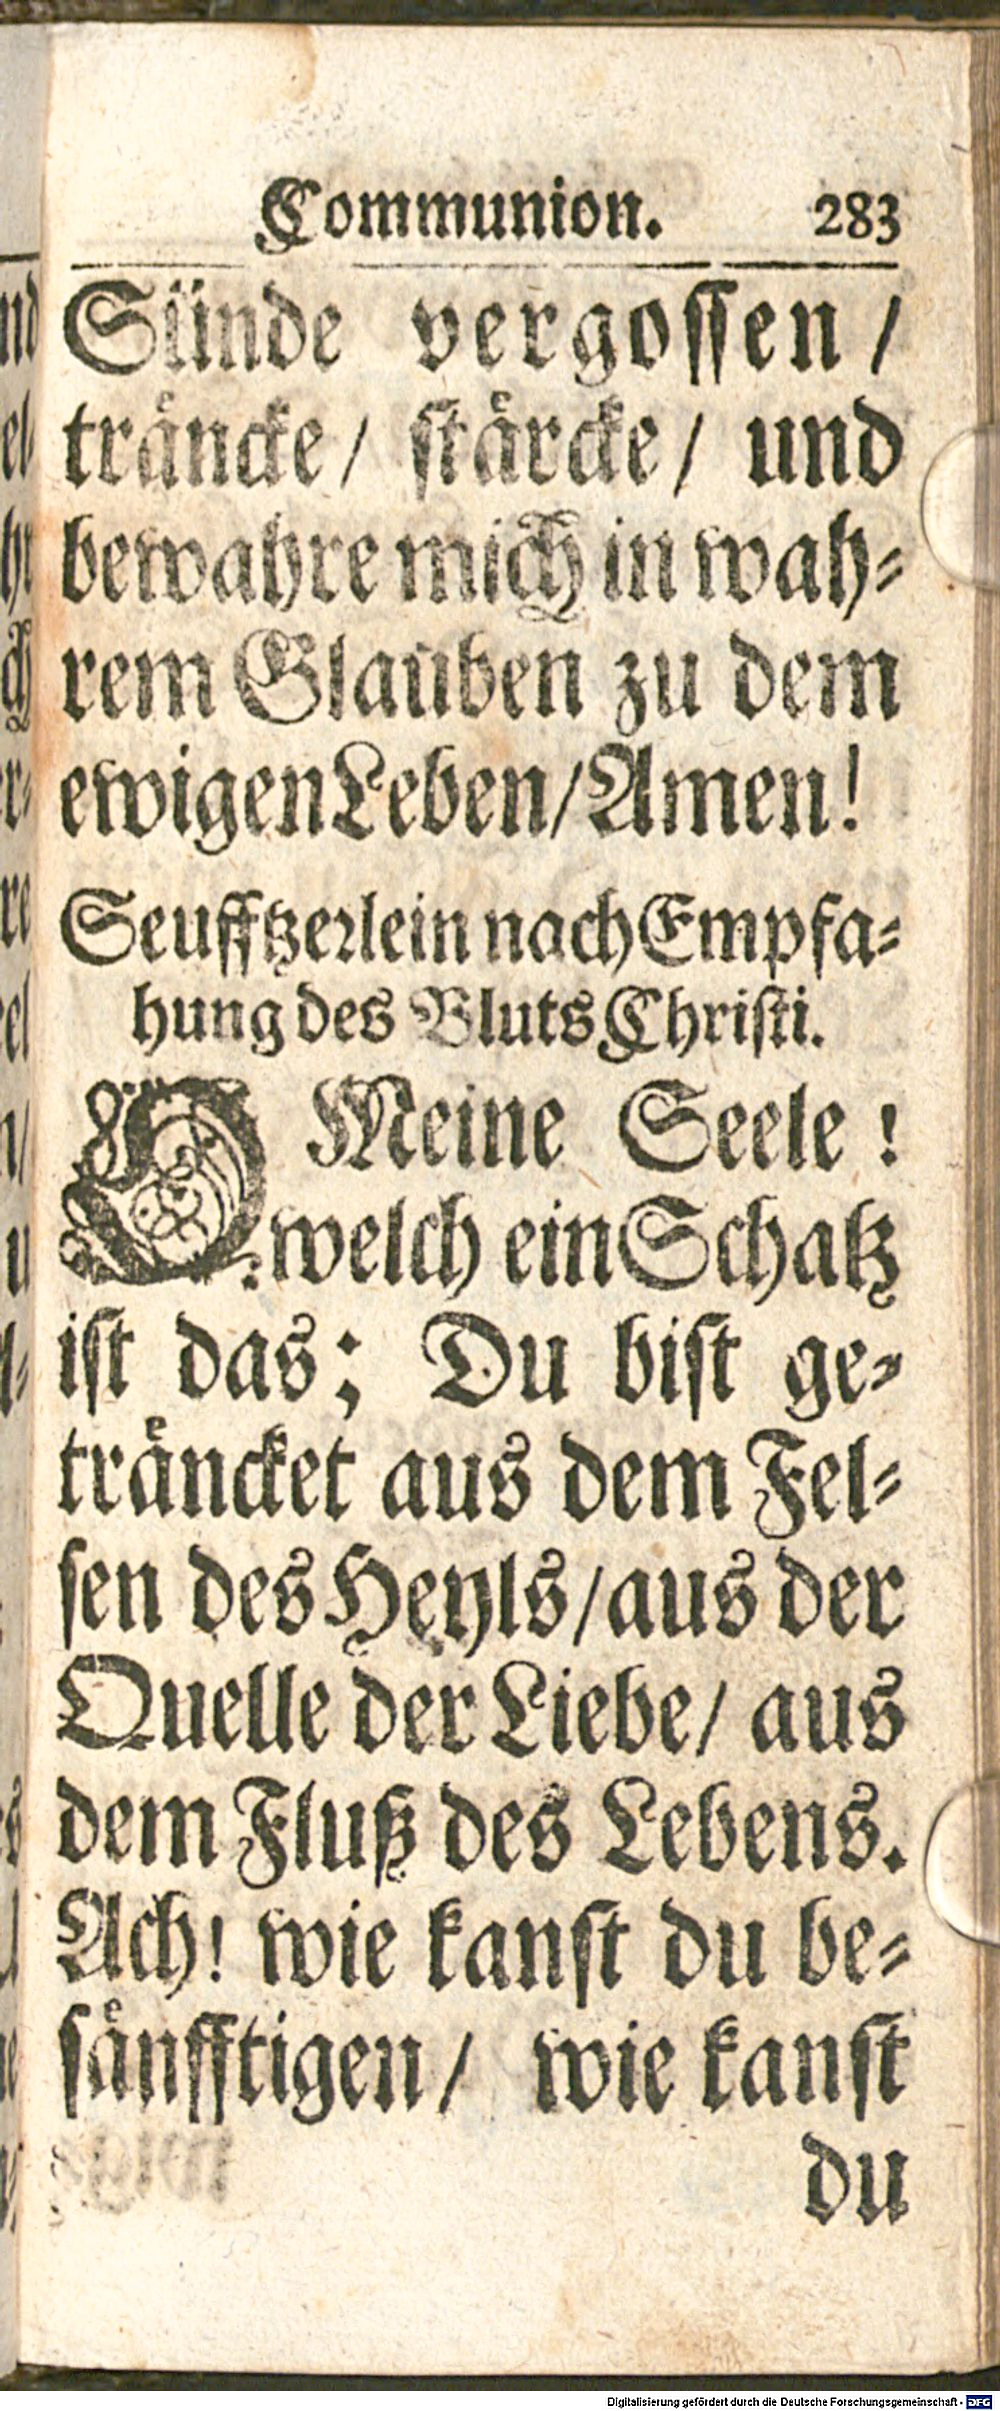 Communion. 283
Sünde vergossen /
tråncke / stårcke / und
bewahre mich in wah⸗
rem Glauben zu dem
ewigen Leben / Amen!
Seufftzerlein nach Empfa⸗
hung des Bluts Christi.
O Meine Seele !
welch ein Schatz
ist das; Du bist ge⸗
träncket aus dem Fel⸗
sen des Heyls / aus der
Quelle der Liebe / aus
dem Fluß des Lebens.
Ach! wie kanst du be⸗
sänfftigen / wie kanst
du
Digitalisierung gefördert durch die Deutsche Forschungsgemeinschaft - DFG